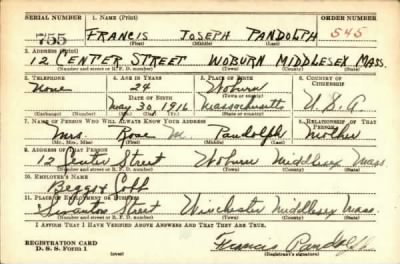 SERIAL NUMBER 1. NAME (Print) ORDER NUMBER
755 FRANCIS JOSEPH PANDOLPH 545
(First) (Middle) (Last)
2. ADDRESS (Print)
12 CENTER STREET WOBURN MIDDLESEX MASS.
(Number and street or R. F. D. number) (Town) (County) (State)
3. TELEPHONE 4. AGE IN YEARS 5. PLACE OF BIRTH 6. COUNTRY OF CITIZENSHIP
None 24 Woburn
DATE OF BIRTH
May 30, 1916 Massachusetts U.S.A.
(Exchange) (Number) (Mo.) (Day) (Yr.) (State or country)
7. NAME OF PERSON WHO WILL ALWAYS KNOW YOUR ADDRESS 8. RELATIONSHIP OF THAT PERSON
Mrs. Rose M. Pandolph Mother
(Mr., Mrs., Miss) (First) (Middle) (Last)
9. ADDRESS OF THAT PERSON
12 Center Street Woburn Middlesex Mass
(Number and street or R. F. D. number) (Town) (County) (State)
10. EMPLOYER'S NAME
Beggs & Cobb
11. PLACE OF EMPLOYMENT OR BUSINESS
Swanton Street Winchester Middlesex Mass.
(Number and street or R. F. D. number) (Town) (County) (State)
I AFFIRM THAT I HAVE VERIFIED ABOVE ANSWERS AND THAT THEY ARE TRUE.
REGISTRATION CARD
D. S. S. Form 1 Francis Pandolph
(over) (Registrant's signature)